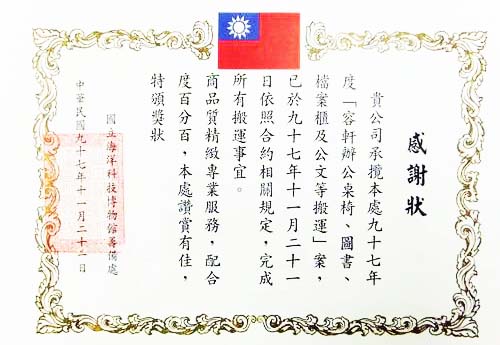 感謝狀
貴公司承攬本處九十七年
度「容軒辦公桌椅、圖書、
檔案櫃及公文等搬運」案，
已於九十七年十一月二十一
日依照合約相關規定，完成
所有搬運事宜。
商品質精緻專業服務，配合
度百分百，本處讚賞有佳，
特頒獎狀
國立海洋科技博物館籌備處
中華民國九十七年十一月二十二日